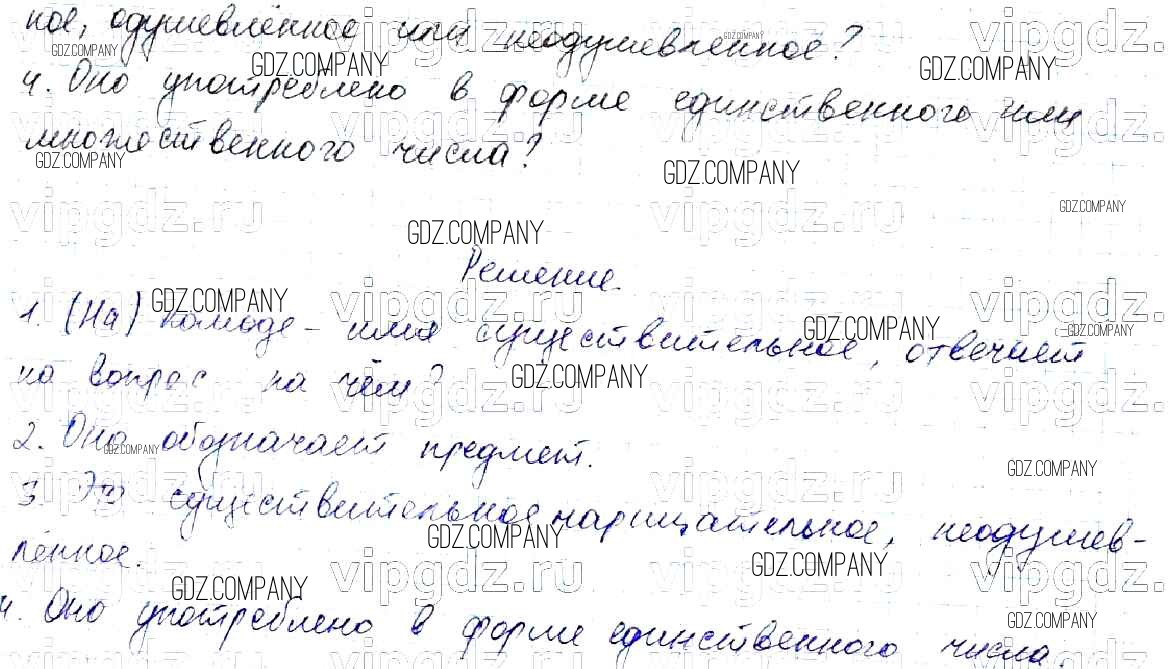 ное, одушевлённое или неодушевленное?
4. Оно употреблено в форме единственного или
множественного числа?
Решение.
1. (На) комоде - имя существительное, отвечает
на вопрос на чём?
2. Оно обозначает предмет.
3. Это существительное нарицательное, неодушев-
лённое.
4. Оно употреблено в форме единственного числа.
vipgdz.ru
GDZ.COMPANY